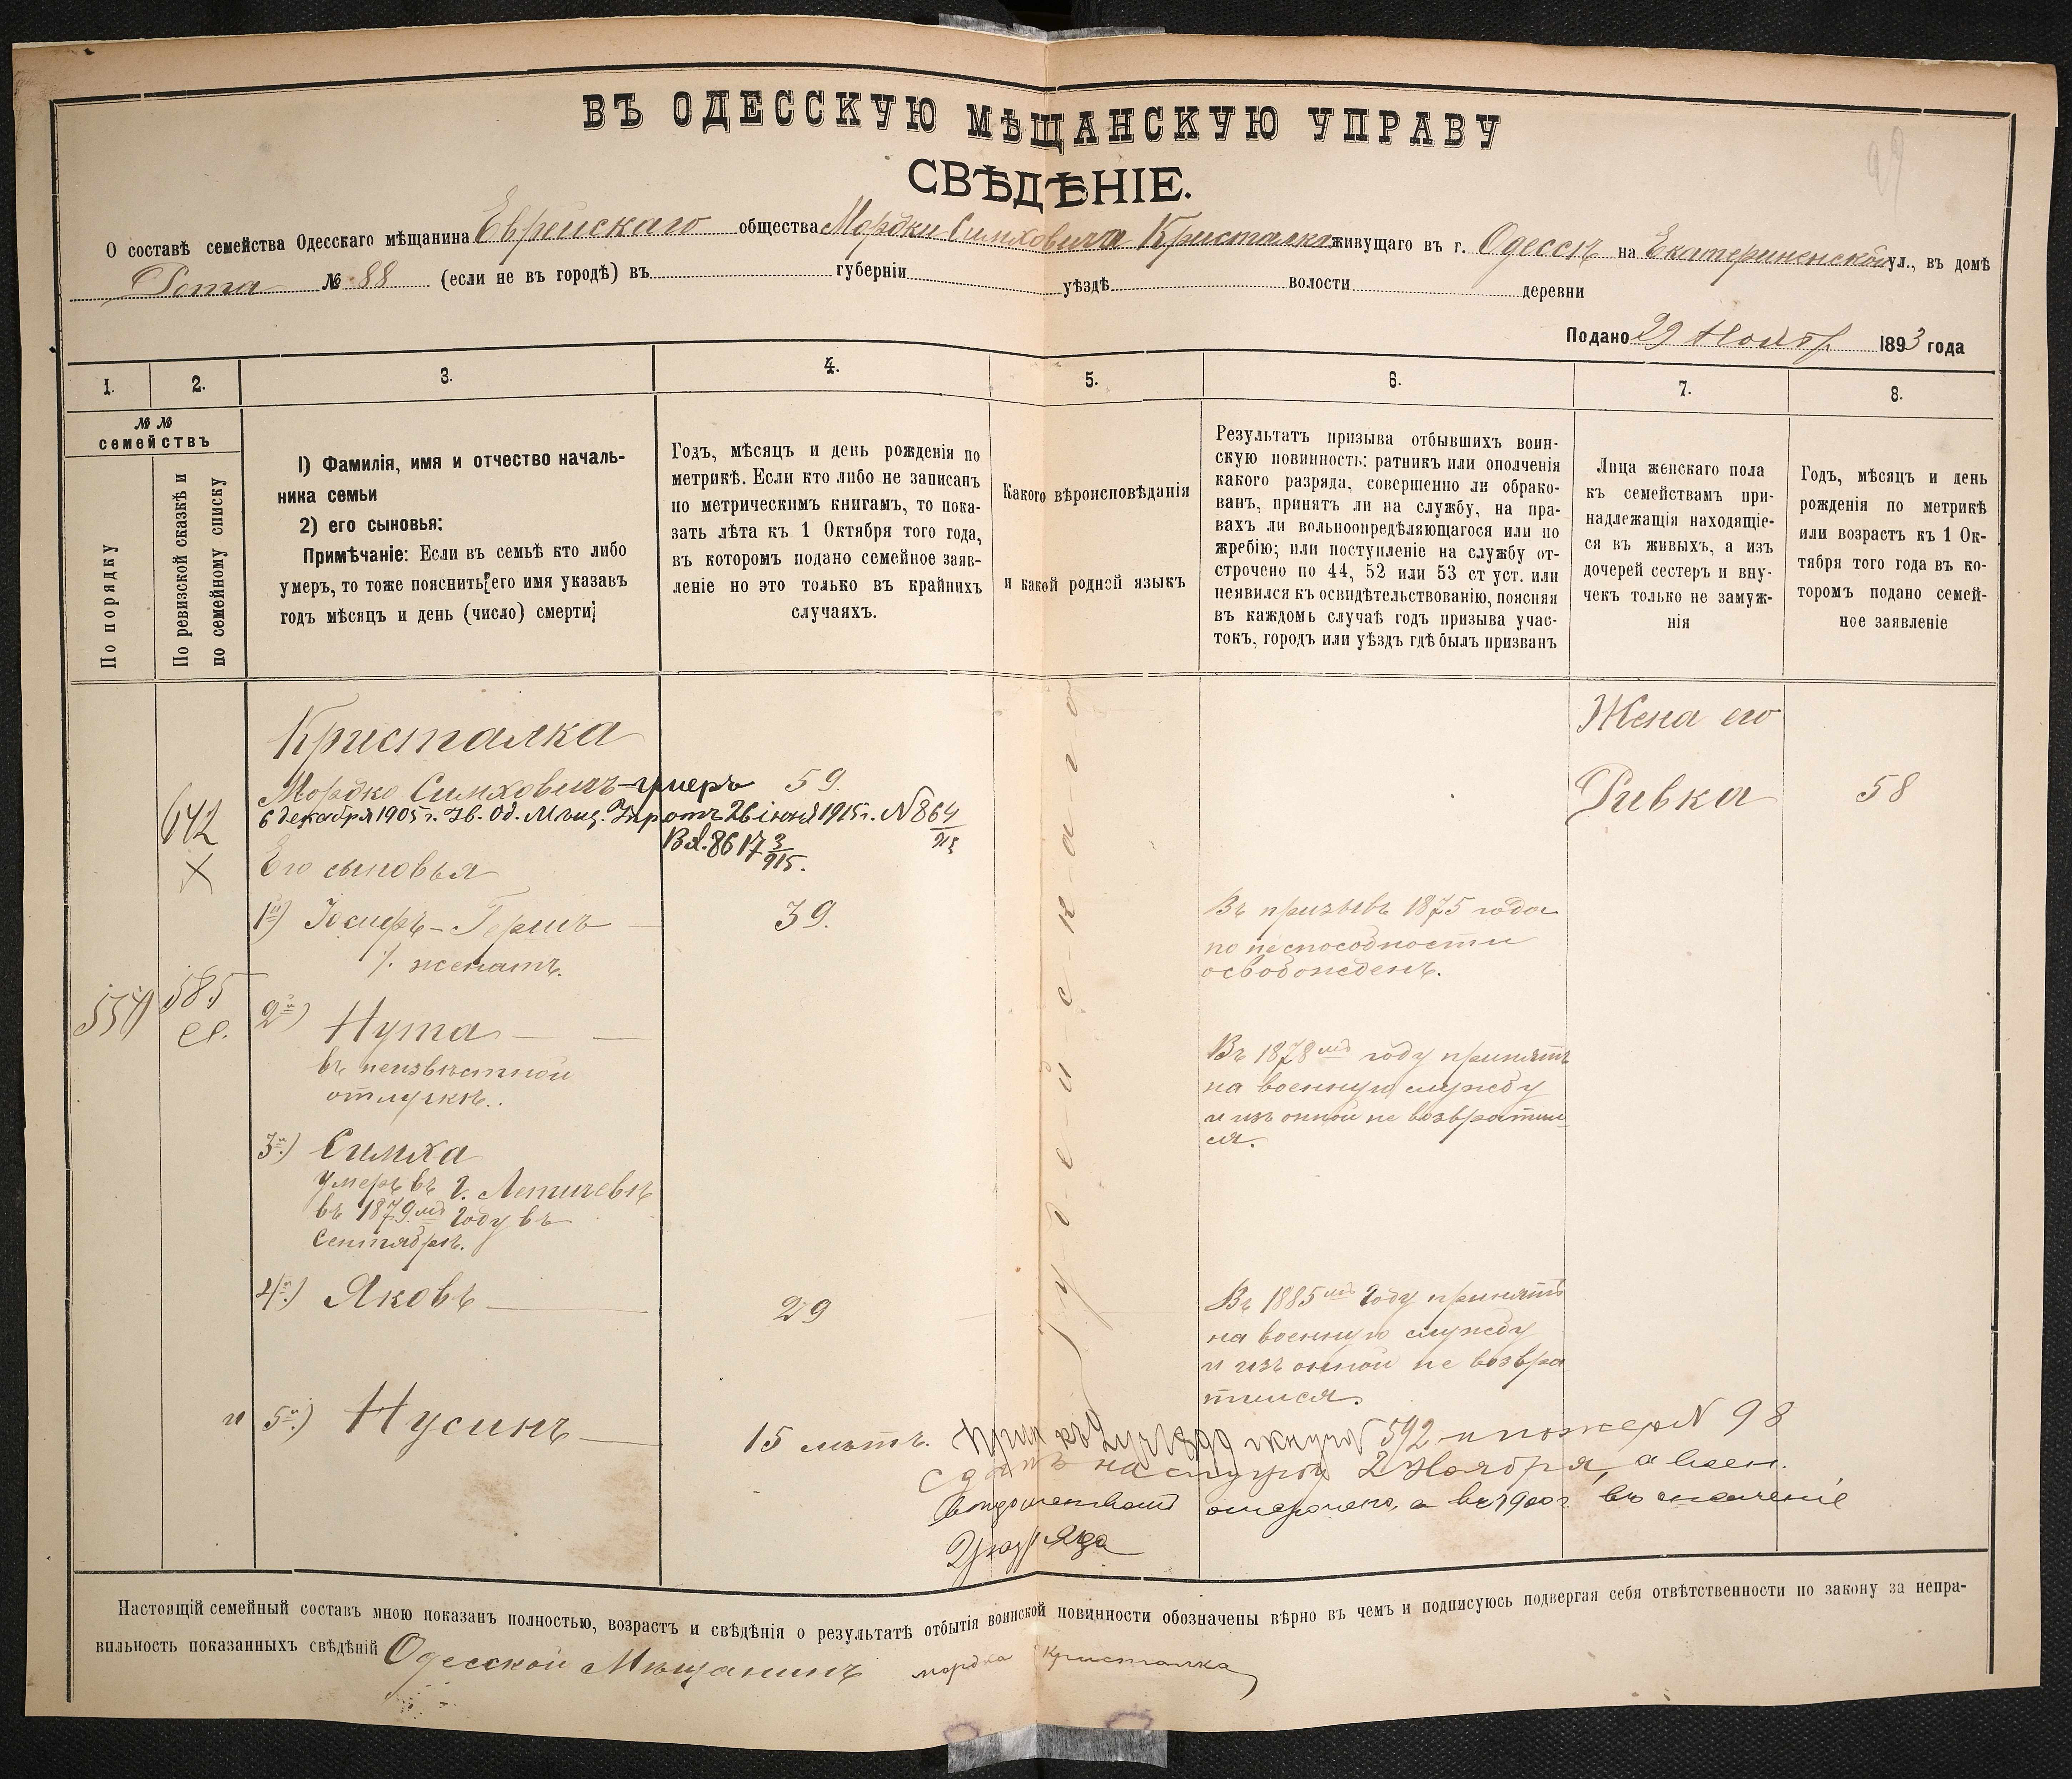 ВЪ ОДЕССКУЮ МѢЩАНСКУЮ УПРАВУ
СВѢДѢНІЕ.
О составѣ семейства Одесскаго мѣщанина Еврейскаго общества Мордки Симховича Кристалка живущаго въ г. Одессѣ на Екатериненской ул., въ домѣ
Рота № 88 (если не въ городѣ) въ губерніи уѣздѣ волости деревни
Подано 29 Ноябр. 1893 года
1. 2. 3. 4. 5. 6. 7. 8.
№ №
семействъ
По порядку
По ревизской сказкѣ и
по семейному списку
1) Фамилія, имя и отчество началь-
ника семьи
2) его сыновья:
Примѣчаніе: Если въ семьѣ кто либо
умеръ, то тоже пояснить его имя указавъ
годъ мѣсяцъ и день (число) смерти;
Годъ, мѣсяцъ и день рожденія по
метрикѣ. Если кто либо не записанъ
по метрическимъ книгамъ, то пока-
зать лѣта къ 1 Октября того года,
въ которомъ подано семейное заяв-
леніе но это только въ крайнихъ
случаяхъ.
Какого вѣроисповѣданія
и какой родной языкъ
Результатъ призыва отбывшихъ воин-
скую повинность: ратникъ или ополченія
какого разряда, совершенно ли обрако-
ванъ, принятъ ли на службу, на пра-
вахъ ли вольноопредѣляющагося или по
жребію; или поступленіе на службу от-
строчено по 44, 52 или 53 ст уст. или
неявился къ освидѣтельствованію, поясняя
въ каждомъ случаѣ годъ призыва учас-
токъ, городъ или уѣздъ гдѣ былъ призванъ
Лица женскаго пола
къ семействамъ при-
надлежащія находящіе-
ся въ живыхъ, а изъ
дочерей сестеръ и вну-
чекъ только не замуж-
нія
Годъ, мѣсяцъ и день
рожденія по метрикѣ
или возрастъ къ 1 Ок-
тября того года въ ко-
торомъ подано семей-
ное заявленіе
Кристалка
Жена его
Мордко Симховичъ - умеръ 59.
Ривка 58
6 декабря 1905 г. Ув. Од. Мѣщ. Упр отъ 26 іюня 1915 г. N 864/915
642
Вх. 8617 3/915.
Его сыновья
1й) Іосифъ-Гершъ 39.
женатъ.
Въ призывъ 1875 года
по неспособности
освобожденъ.
554 585
2й) Нута
въ неизвѣстной
отлучкѣ.
Въ 1878мъ году принятъ
на военную службу
и изъ онной не возвратил-
ся.
3й) Симха
умеръ въ г. Летичевѣ
въ 1879мъ году въ
Сентябрѣ.
4й) Яковъ 29
Въ 1885мъ году принятъ
на военную службу
и изъ онной не возвра
тился.
Іудейскаго
5й) Нусинъ 15 лѣтъ.
592 и по жер N 98
на службу 2 Ноября, а воен.
отсрочено, а въ 1900 г въ ополченіе
2 разряда
Настоящій семейный составъ мною показанъ полностью, возрастъ и свѣдѣнія о результатѣ отбытія воинской повинности обозначены вѣрно въ чемъ и подписуюсь подвергая себя отвѣтственности по закону за непра-
вильность показанныхъ свѣдѣній Одесской Мѣщанинъ мордка Кристалка